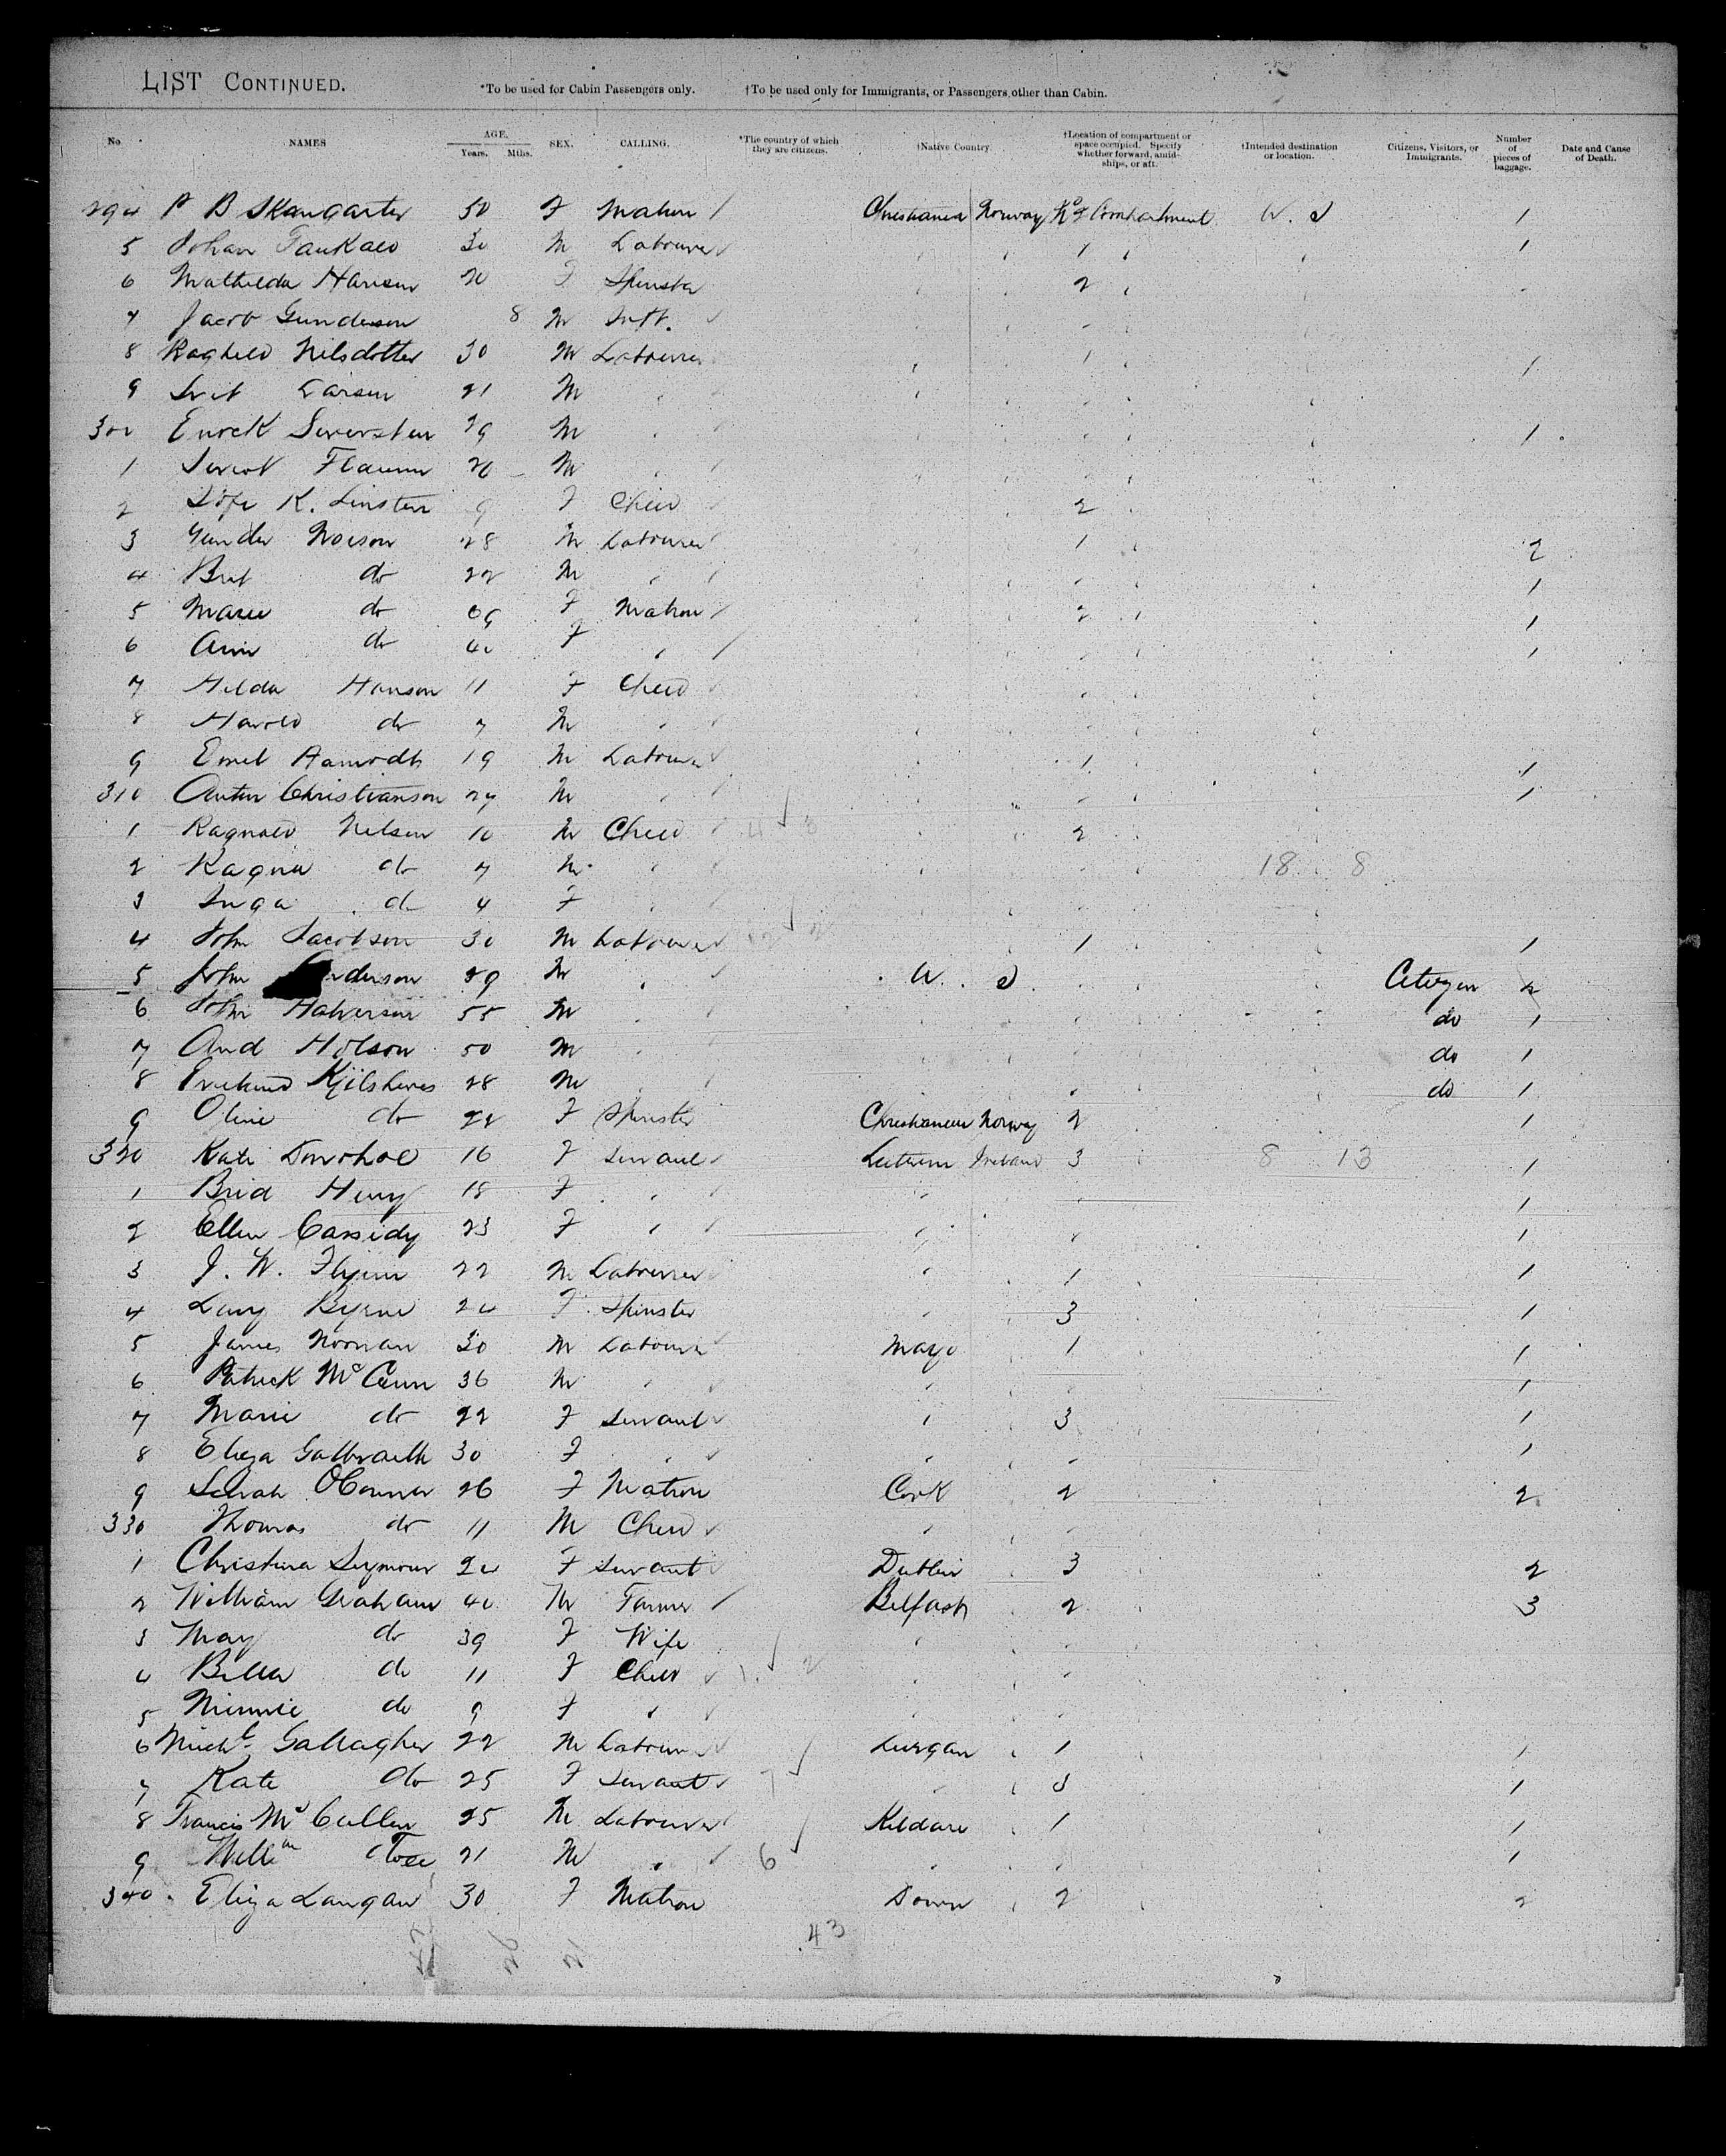 LIST CONTINUED. *To be used for Cabin Passengers only. †To be used only for Immigrants, or Passengers other than Cabin.
No. NAMES AGE. Years. Mths. SEX. CALLING. *The country of which they are citizens. †Native Country. †Location of compartment or space occupied. Specify whether forward, amidships, or aft. †Intended destination or location. Citizens, Visitors, or Immigrants. Number of pieces of baggage. Date and Cause of Death.
294 P B Skangarter 50 F Matron Christiania Norway No 2 Compartment U. S 1
5 Johan 30 M Labourer 1 1
6 Mathilda Hansen 20 F Spinster 2
7 Jacob Gunderson 8 M Inft.
8 Raghild Nilsdotter 30 M Labourer 1 1
9 Larsen 21 M
300 Enock Siversten 29 M 1
1 20 M
2 K. 9 F Child 2
3 Gunder 28 M Labourer 1 2
4 Brit do 22 M 1
5 Marie do 09 F Matron 2 1
6 Ann do 40 F 1
7 Hilda Hanson 11 F Child
8 Harold do 7 M
9 Emil Aamodts 19 M Labourer 1 1
310 Anton Christianson 27 M 1
1 Ragnald Nelson 10 M Child 4 3 2
2 Ragna do 7 M 18 8
3 Inga do 4 F
4 John Jacobson 30 M Labourer 1 1
5 John nderson 29 M U. S. Citizen 2
6 John Halverson 55 M do 1
7 And Holson 50 M do 1
8 28 M do 1
9 Oline do 22 F Spinster Christiania Norway 2 1
320 Kate Donohoe 16 F Servant Leitrim Ireland 3 8 13 1
1 Brid Henry 18 F 1
2 Ellen Cassidy 23 F 1
3 J. W. Flynn 22 M Labourer 1 1
4 Byrne 24 F Spinster 3 1
5 James Noonan 30 M Labourer Mayo 1 1
6 Patrick McCann 36 M 1
7 Marie do 22 F Servant 3 1
8 Eliza Galbraith 30 F 1
9 Sarah OConnor 26 F Matron Cork 2 2
330 Thomas do 11 M Child
1 Christina Seymour 24 F Servant Dublin 3 2
2 William Graham 40 M Farmer Belfast 2 3
3 May do 39 F Wife
4 Bella do 11 F Child 2
5 Minnie do 9 F
6 Michl. Gallagher 22 M Labourer Lurgan 1 1
7 Kate do 25 F Servant 3 1
8 Francis McCullen 25 M Labourer Kildare 1 1
9 Willm 21 M 6 1
340 Eliza Langan 30 F Matron Down 2 2
43